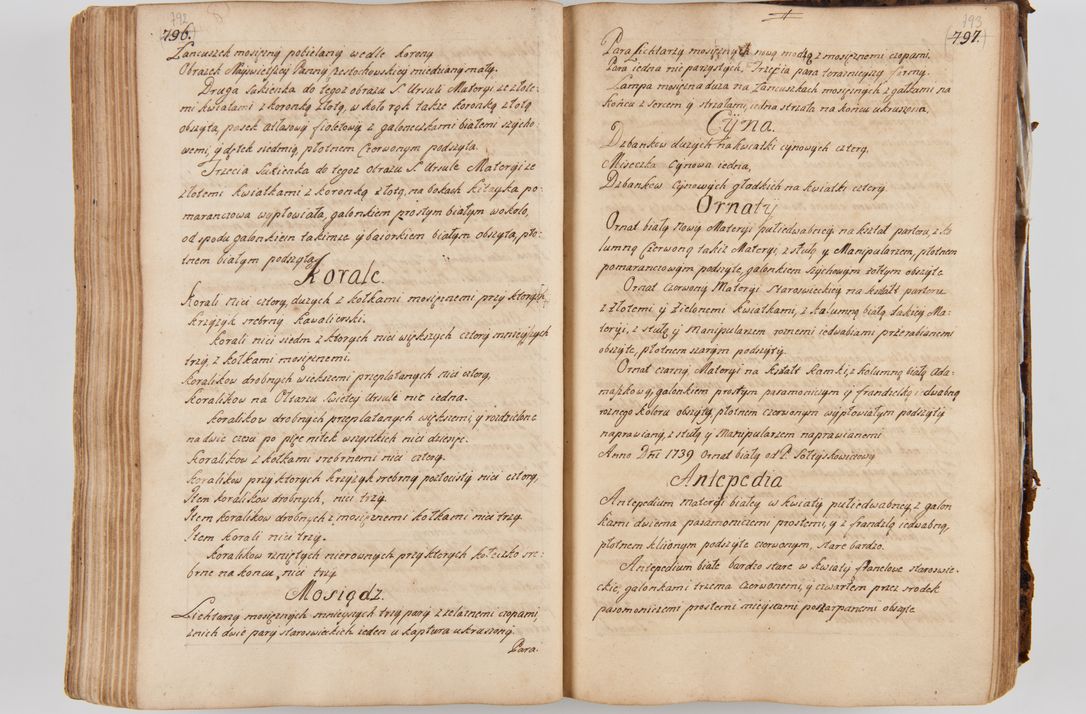 792
796.
Lancuszek mosiężny pobielany wedle korony
Obrazek Nayswiętszey Panny Częstochowskiey miedziany mały.
Druga sukienka do tegoz obrazu S. Ursuli Materyi ze złote-
mi kwiatami z koronką złotą, w koło rąk także koronką złotą
obszyta, pasek atłasowy fioletowy z galoneczkami białemi szycho-
wemi, y dętek siedmią, płotnem Czerwonym podszyta.
Trzecia Sukienka do tegoz obrazu S. Ursule Materyi ze
złotemi kwiatkami z koronką złotą, na bokach kitayka po-
maranczowa wypłowiała, galonkiem prostym białym wokoło,
od spodu galonkiem takimze y baiorkiem białym obszyta, pło-
tnem białym podszyta.
Korale.
Korali nici cztery, duzych z kolkami mosiężnemi przy ktorych
krzyżyk srebrny Kawalierski.
Korali nici siedm z ktorych nici większych cztery mnieyszych
trzy, z kolkami mosiężnemi.
Koralikow drobnych większemi przeplatanych nici cztery,
Koralikow na Obrazu Swiętey Ursule nic iedna.
Koralikow drobnych przeplatanych większemi, y rozdzielone
na dwie częsci po pięc nitek wszystkich nici dziesięc.
Koralikow z kolkami srebrnemi nici cztery.
Koralikow przy ktorych krzyżyk srebrny pozłocisty nici cztery,
Item koralikow drobnych, nici trzy.
Item koralikow drobnych z mosiężnemi kolkami nici trzy.
Item korali nici trzy.
Koralikow rzniętych nierownych przy ktorych koleczko sre-
brne na koncu, nici trzy
Mosiądz.
Lichtarzy mosiężnych mnieyszych trzy pary z zelaznemi czopami,
z nich dwie pary staroswieckich ieden u kaptura ukruszony.
Para.
793
797.
Para lichtarzy mosiężnych nową modą z mosiężnemi czopami.
Para iedna nieparzystych, Trzecia para teraznieyszy formy.
Lampa mosiężna duza na Lancuszkach mosiężnych z gałkami na
koncu z sercem y strzałami, iedna strzała na koncu ukruszona,
Cyna.
Dzbankow duzych na kwiatki cynowych cztery.
Miseczka Cynowa iedna,
Dzbankow Cynowych gładkich na kwiatki cztery.
Ornaty
Ornat biały Nowy Materyi pułiedwabney na kształ parteru, z ko
lumną Czerwoną takiz Materyi, z stułą y Manipularzem, płotnem
pomaranczowym podszyte, galonkiem szychowym zołtym obszyte
Ornat czerwony Materyi staroswieckiey na kształt parteru
z złotemi y zielonemi kwiatkami, z kalumną białą takiey Ma-
teryi, z stułą y Manipularzem roznemi iedwabiami przerabianemi
obszyte, płotnem szarym podszyty.
Ornat czarny Materyi na kształt Kamki, z kolumną białą Ada-
maszkową, galonkiem prostym pasamoniczym y frandzelką iedwabną
roznego koloru obszyty, płotnem czerwonym wypłowiałym podszyty
naprawiany, z stułą y Manipularzem naprawianemi
Anno Dni 1739 Ornat biały od P. Sołtyskowiczowy
Antepedia
Antepedium materyi białey w kwiaty pułiedwabney, z galon
kami dwiema pasamoniczemi prostemi, y z frandzlą iedwabną,
płotnem kliionym podszyte czerwonym, stare bardzo.
Antepedium białe bardzo stare w kwiaty flanelowe staroswie-
ckie, galonkami trzema czerwonemi, y czwartem przez srodek
pasamoniczemi prostemi mieyscami poszarpanemi obszyte